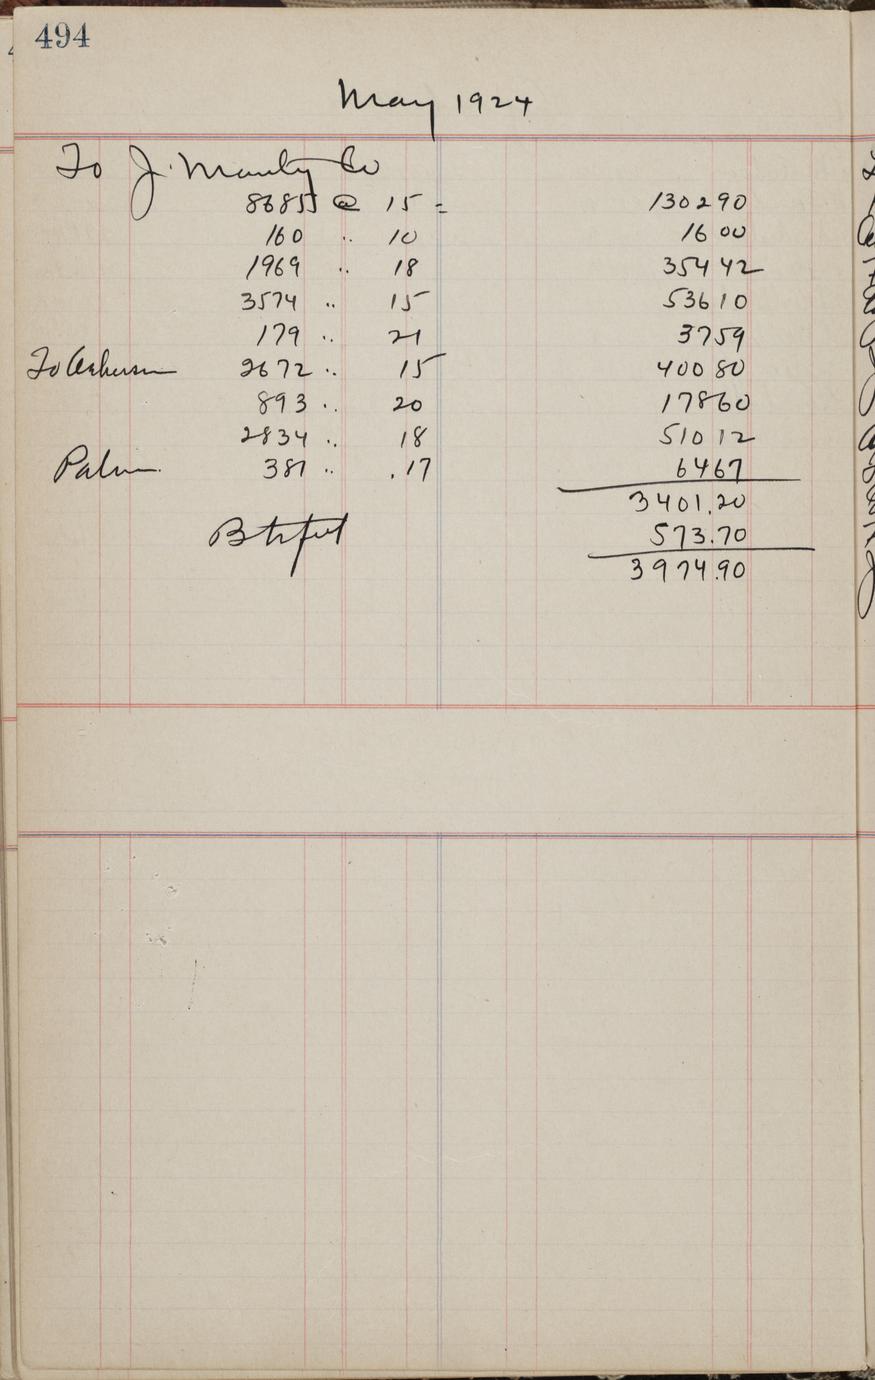 494
May 1924
To J. Co
8685 @ 15 = 130290
160 .. 10 1600
1969 .. 18 35442
3574 .. 15 53610
179 .. 21 3759
To 2672 .. 15 40080
893 .. 20 17860
2834 .. 18 51012
381 .. .17 6467
3401.20
573.70
3974.90